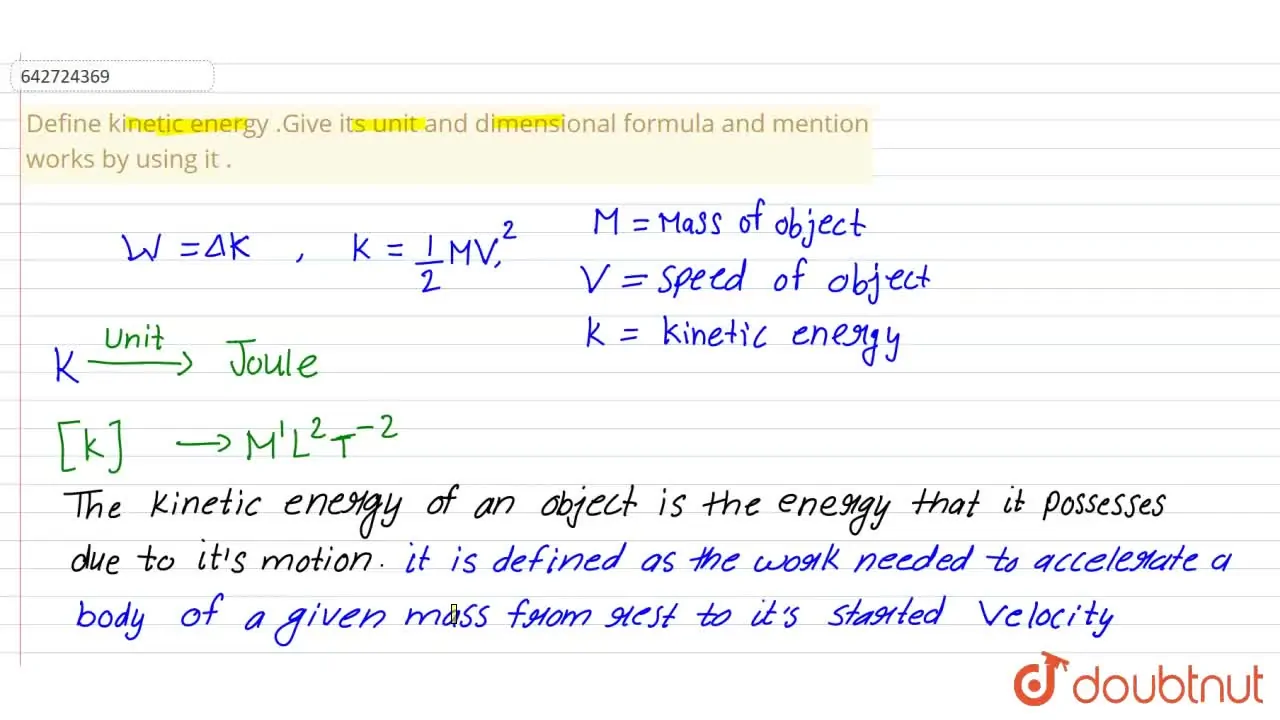 642724369
Define kinetic energy .Give its unit and dimensional formula and mention
works by using it .
W = ΔK , K = 1/2 MV²
M = Mass of object
V = speed of object
K = kinetic energy
K Unit → Joule
[K] → M¹L²T⁻²
The kinetic energy of an object is the energy that it possesses
due to it's motion. it is defined as the work needed to accelerate a
body of a given mass from rest to it's started velocity
doubtnut